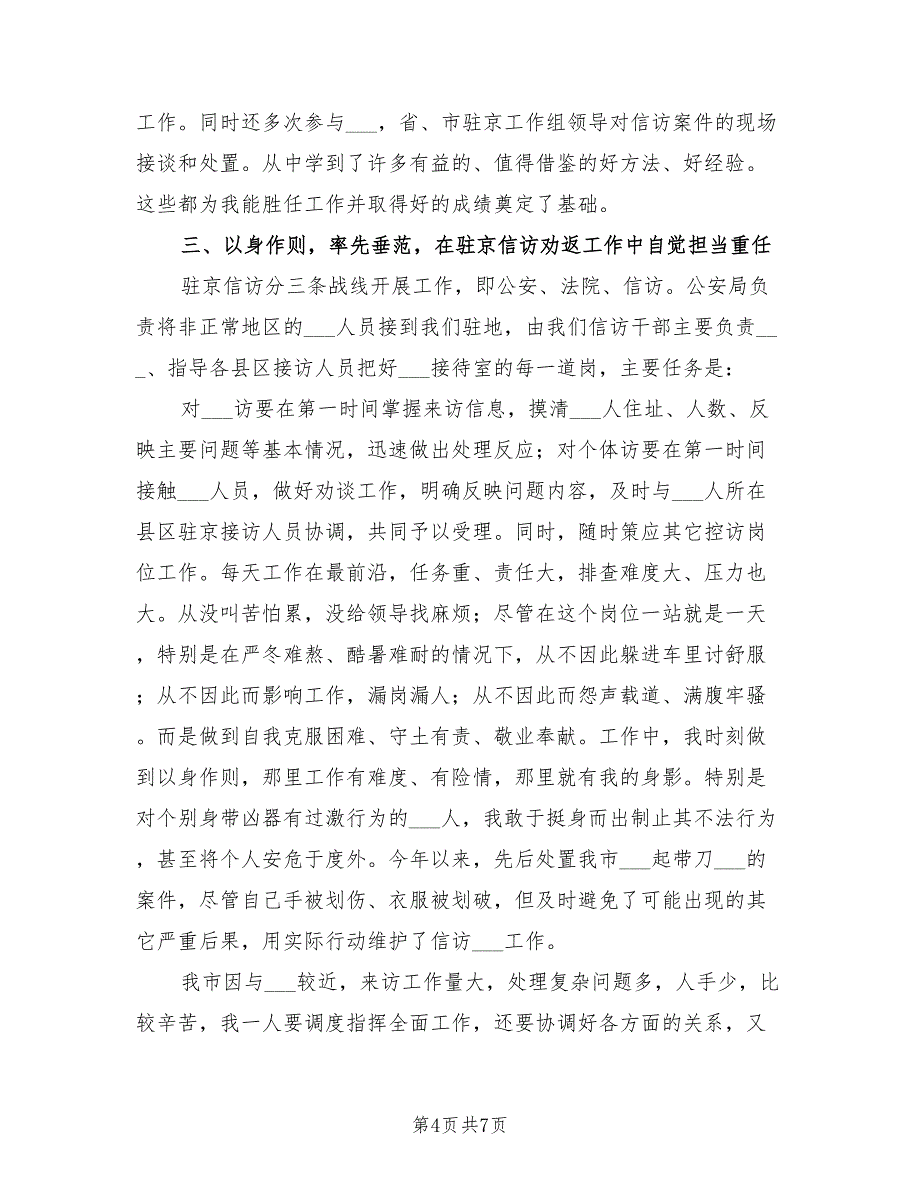 工作。同时还多次参与___，省、市驻京工作组领导对信访案件的现场
接谈和处置。从中学到了许多有益的、值得借鉴的好方法、好经验。
这些都为我能胜任工作并取得好的成绩奠定了基础。
三、以身作则，率先垂范，在驻京信访劝返工作中自觉担当重任
驻京信访分三条战线开展工作，即公安、法院、信访。公安局负
责将非正常地区的___人员接到我们驻地，由我们信访干部主要负责__
_、指导各县区接访人员把好___接待室的每一道岗，主要任务是：
对___访要在第一时间掌握来访信息，摸清___人住址、人数、反
映主要问题等基本情况，迅速做出处理反应；对个体访要在第一时间
接触___人员，做好劝谈工作，明确反映问题内容，及时与___人所在
县区驻京接访人员协调，共同予以受理。同时，随时策应其它控访岗
位工作。每天工作在最前沿，任务重、责任大，排查难度大、压力也
大。从没叫苦怕累，没给领导找麻烦；尽管在这个岗位一站就是一天
，特别是在严冬难熬、酷暑难耐的情况下，从不因此躲进车里讨舒服
；从不因此而影响工作，漏岗漏人；从不因此而怨声载道、满腹牢骚
。而是做到自我克服困难、守土有责、敬业奉献。工作中，我时刻做
到以身作则，那里工作有难度、有险情，那里就有我的身影。特别是
对个别身带凶器有过激行为的___人，我敢于挺身而出制止其不法行为
，甚至将个人安危于度外。今年以来，先后处置我市___起带刀___的
案件，尽管自己手被划伤、衣服被划破，但及时避免了可能出现的其
它严重后果，用实际行动维护了信访___工作。
我市因与___较近，来访工作量大，处理复杂问题多，人手少，比
较辛苦，我一人要调度指挥全面工作，还要协调好各方面的关系，又
第4页共7页